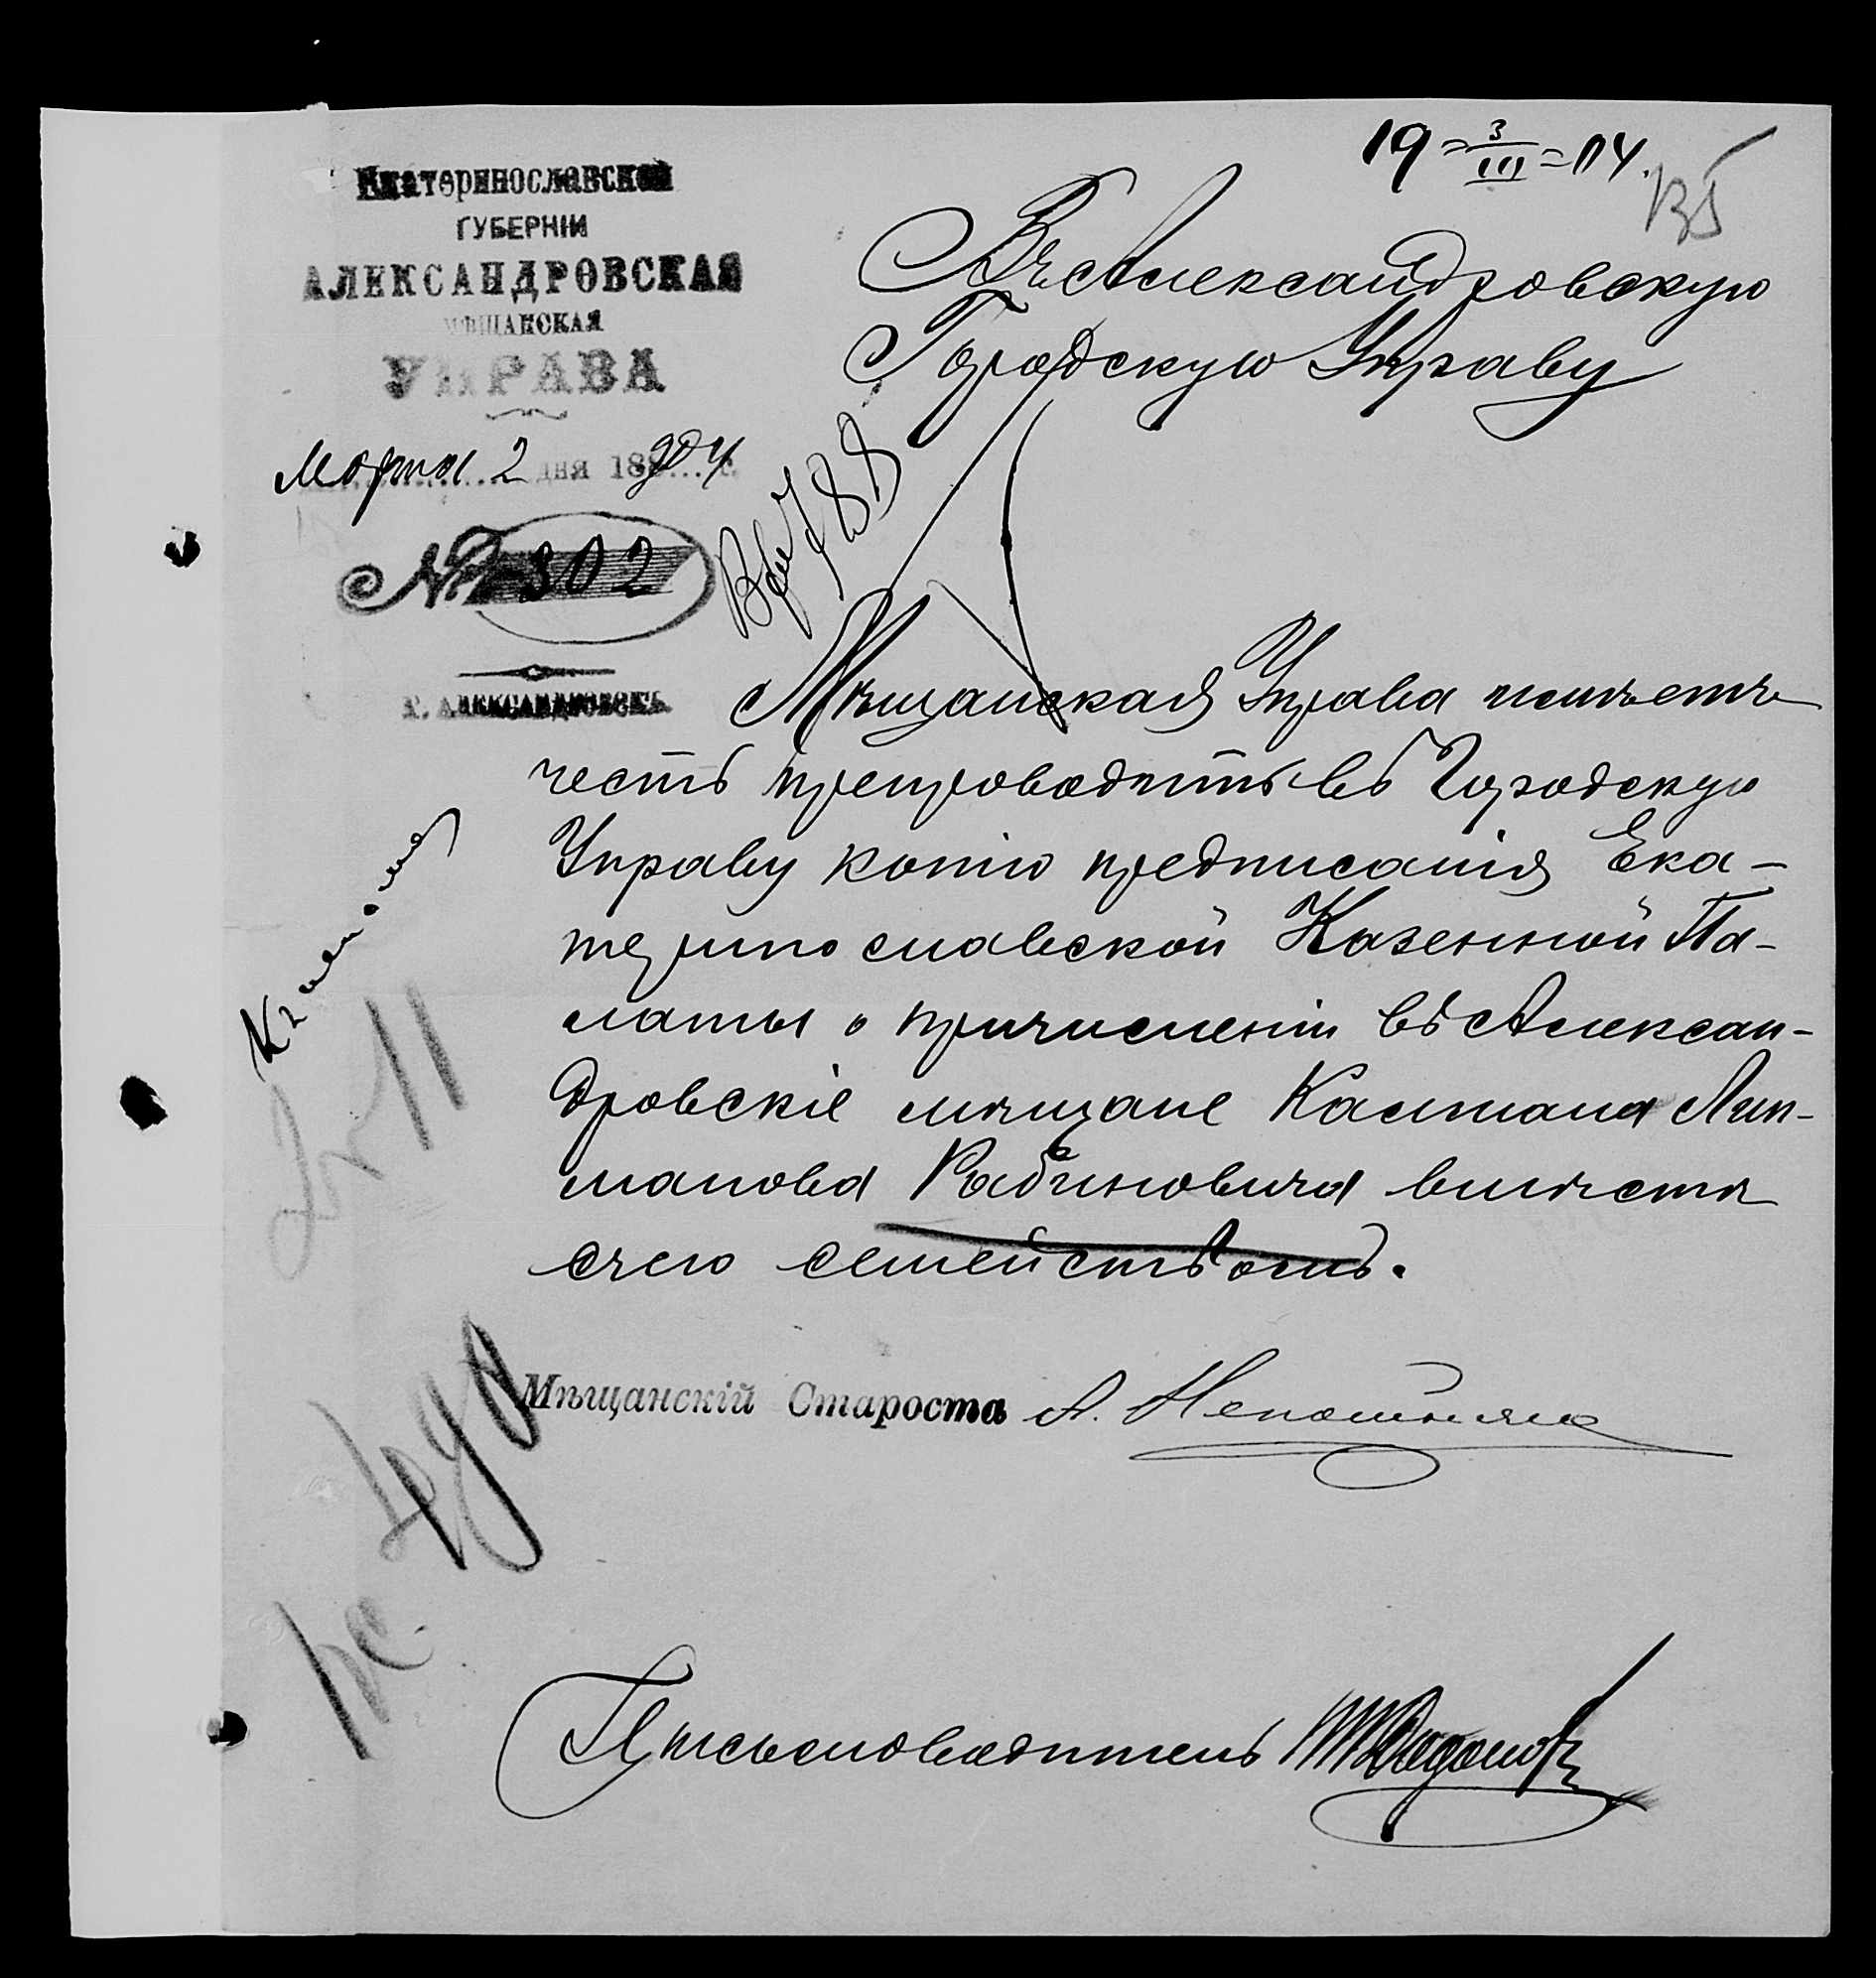 19 = 3/III = 04.
Екатеринославской
ГУБЕРНІИ
АЛЕКСАНДРОВСКАЯ
МѢЩАНСКАЯ
УПРАВА
Марта 2 дня 1904 г.
№ 302
Г. АЛЕКСАНДРОВСКЪ
Въ Александровскую
Городскую Управу
Мѣщанская Управа имѣетъ
честь препроводить въ Городскую
Управу копію предписанія Ека-
теринославской Казенной Па-
латы о причисленіи въ Алексан-
дровскіе мѣщане Калмана Лип-
манова Рабиновича вмѣстѣ
съ его семействомъ.
Мѣщанскій Староста А.
Письмоводитель